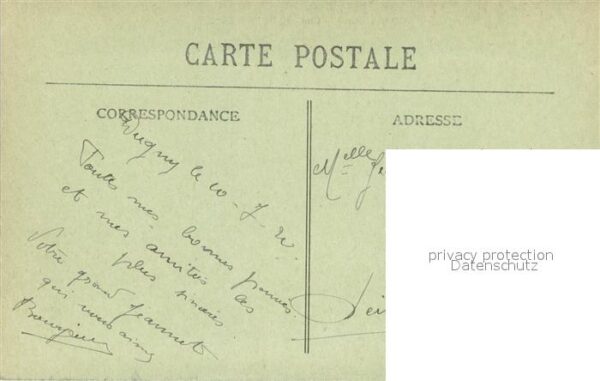 CARTE POSTALE
CORRESPONDANCE
ADRESSE
Dugny le 10 - J -
Toutes mes bonnes pensées
et mes amitiés les
plus sincères
Votre grand Jeannot
qui vous aime
Melle
privacy protection
Datenschutz